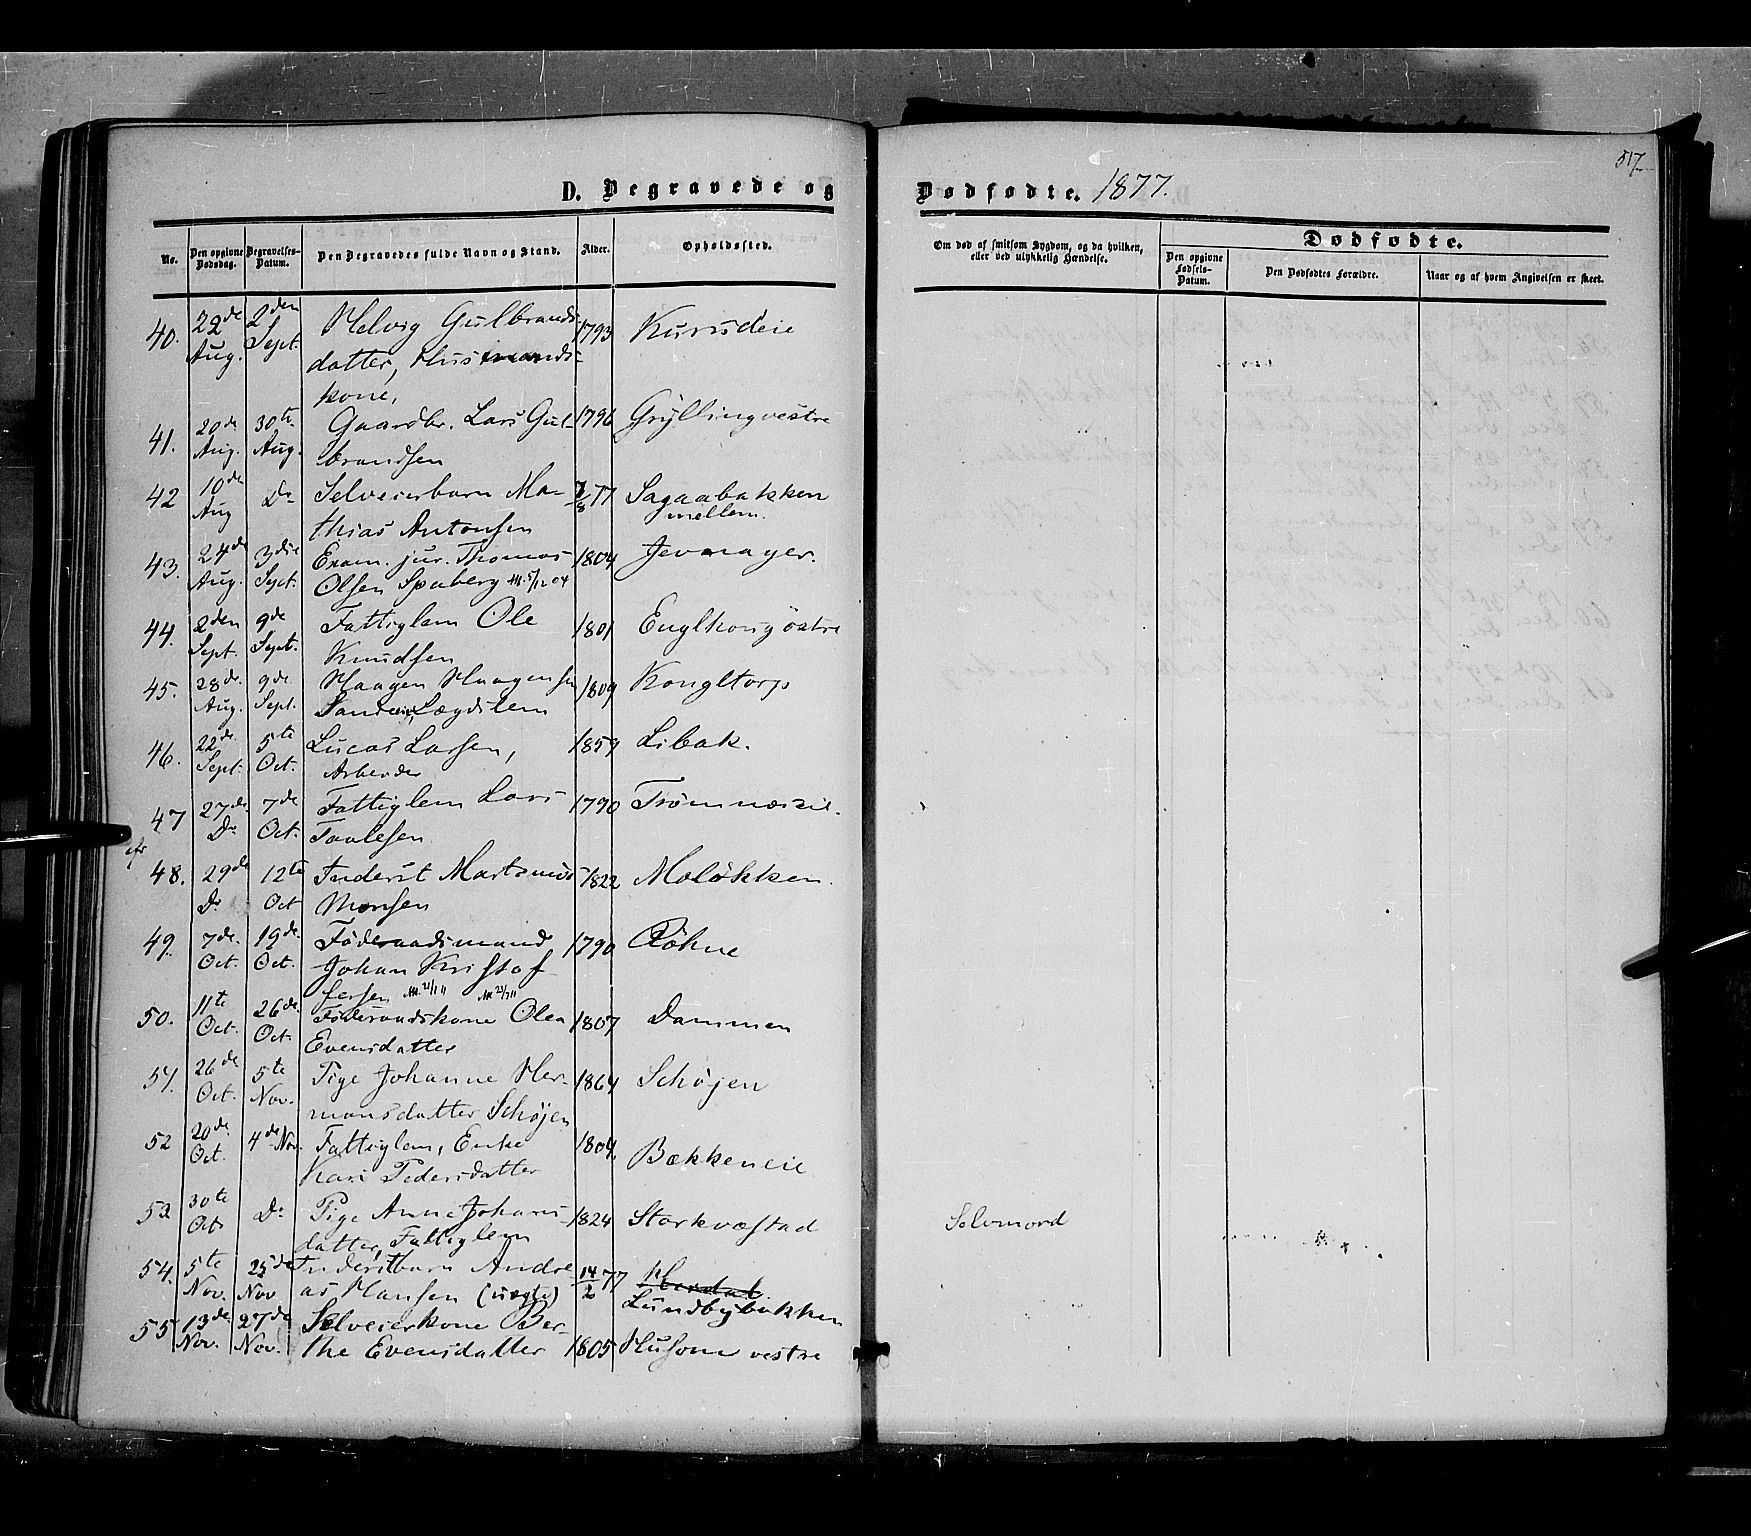 517
D. Begravede og Dødfødte. 1877.
No.
Den opgivne Dødsdag.
Begravelses-Datum.
Den Begravedes fulde Navn og Stand.
Alder.
Opholdssted.
Om død af smitsom Sygdom, og da hvilken, eller ved ulykkelig Hændelse.
Dødfødte.
Den opgivne Fødsels-Datum.
Den Dødfødtes Forældre.
Naar og af hvem Angivelsen er skeet.
40. 22de Aug. 2den Sept. Helvig Gulbrands- 1793
datter, Husmands-
kone,
41. 20de Aug. 30te Aug. Gaardbr. Lars Gul- 1796 Gryllingvestre
brandsen
42 10de Aug Do Selveierbarn Ma- 7/8 77 Sagaabakken
thias Antonsen mellem.
43. 24de Aug. 3die Sept. Exam. jur. Thomas 1804
Olsen Spaberg
44. 2den Sept. 9de Sept. Fattiglem Ole 1801
Knudsen
45. 28de Aug. 9de Sept. Haagen Haagensen 1809 Kongltorp
Lægdslem
46. 22de Sept. 5te Oct. Lucas Larsen, 1859 Libak.
Arbeider
47 27de Do 7de Oct. Fattiglem Lars 1790 Trømnæseie.
Taalesen
48. 29de Do 12te Oct Inderst Martinus 1822 Moløkken.
Monsen
49. 7de Oct. 19de Oct. Føderaadsmand 1790 Røhne
Johan Kristof-
fersen
50. 11te Oct. 26de Oct. Føderaadskone Olea 1807 Dammen
Evensdatter
51. 26de Oct. 5te Nov. Pige Johanne Her- 1864 Schøjen
mansdatter Schøjen
52 20de Oct. 4de Nov. Fattiglem, Enke 1804. Bækkeneie
Kari Pedersdatter
53 30te Oct Do Pige Anne Johans- 1824 Storkvæstad Selvmord
datter, Fattiglem
54. 5te Nov. 25de Nov Inderstbarn Andre- 14/2 77
as Hansen (uægte) Lundbybakken
55 13de Nov. 27de Nov. Selveierkone Ber-
the Evensdatter 1805 Husom vestre